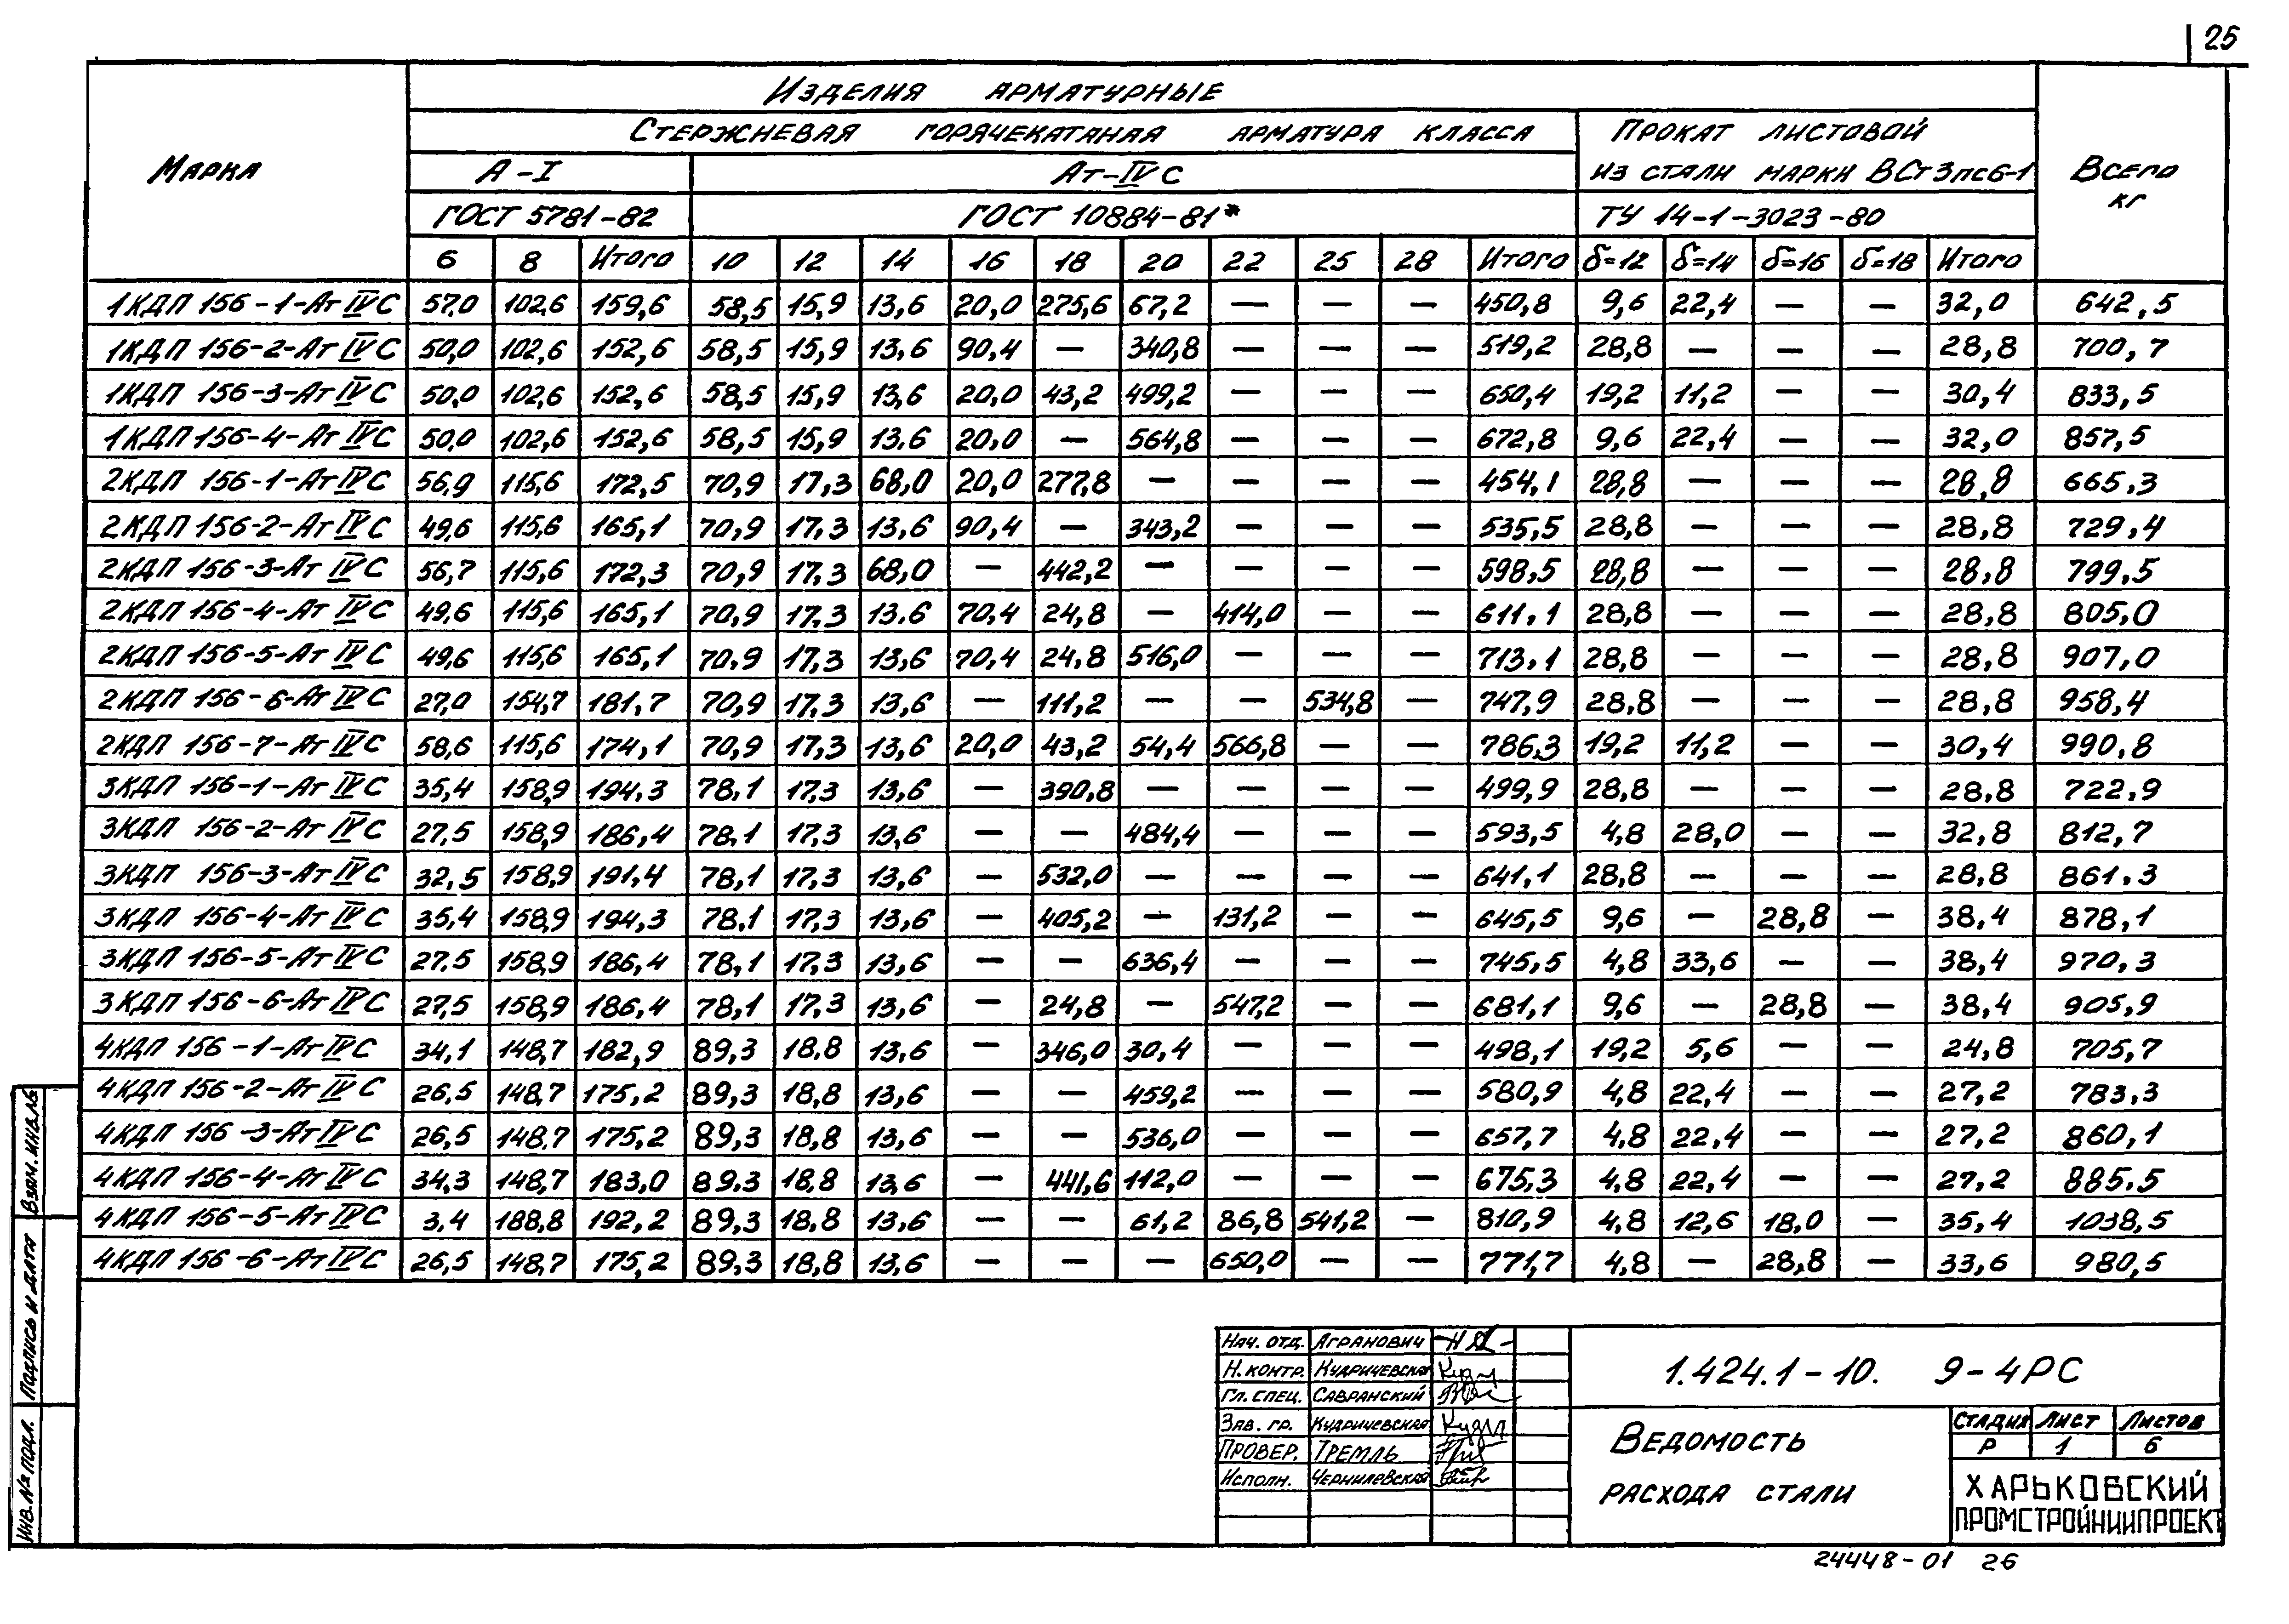 25
Изделия арматурные
Марка
Стержневая горячекатаная арматура класса
Прокат листовой
из стали марки ВСт3пс6-1
Всего кг
А-I
Ат-IVС
ГОСТ 5781-82
ГОСТ 10884-81*
ТУ 14-1-3023-80
6 8 Итого 10 12 14 16 18 20 22 25 28 Итого δ=12 δ=14 δ=16 δ=18 Итого
1КДП 156-1-Ат IVС 57,0 102,6 159,6 58,5 15,9 13,6 20,0 275,6 67,2 — — — 450,8 9,6 22,4 — — 32,0 642,5
1КДП 156-2-Ат IVС 50,0 102,6 152,6 58,5 15,9 13,6 90,4 — 340,8 — — — 519,2 28,8 — — — 28,8 700,7
1КДП 156-3-Ат IVС 50,0 102,6 152,6 58,5 15,9 13,6 20,0 43,2 499,2 — — — 650,4 19,2 11,2 — — 30,4 833,5
1КДП 156-4-Ат IVС 50,0 102,6 152,6 58,5 15,9 13,6 20,0 — 564,8 — — — 672,8 9,6 22,4 — — 32,0 857,5
2КДП 156-1-Ат IVС 56,9 115,6 172,5 70,9 17,3 68,0 20,0 277,8 — — — — 454,1 28,8 — — — 28,8 665,3
2КДП 156-2-Ат IVС 49,6 115,6 165,1 70,9 17,3 13,6 90,4 — 343,2 — — — 535,5 28,8 — — — 28,8 729,4
2КДП 156-3-Ат IVС 56,7 115,6 172,3 70,9 17,3 68,0 — 442,2 — — — — 598,5 28,8 — — — 28,8 799,5
2КДП 156-4-Ат IVС 49,6 115,6 165,1 70,9 17,3 13,6 70,4 24,8 — 414,0 — — 611,1 28,8 — — — 28,8 805,0
2КДП 156-5-Ат IVС 49,6 115,6 165,1 70,9 17,3 13,6 70,4 24,8 516,0 — — — 713,1 28,8 — — — 28,8 907,0
2КДП 156-6-Ат IVС 27,0 154,7 181,7 70,9 17,3 13,6 — 111,2 — — 534,8 — 747,9 28,8 — — — 28,8 958,4
2КДП 156-7-Ат IVС 58,6 115,6 174,1 70,9 17,3 13,6 20,0 43,2 54,4 566,8 — — 786,3 19,2 11,2 — — 30,4 990,8
3КДП 156-1-Ат IVС 35,4 158,9 194,3 78,1 17,3 13,6 — 390,8 — — — — 499,9 28,8 — — — 28,8 722,9
3КДП 156-2-Ат IVС 27,5 158,9 186,4 78,1 17,3 13,6 — — 484,4 — — — 593,5 4,8 28,0 — — 32,8 812,7
3КДП 156-3-Ат IVС 32,5 158,9 191,4 78,1 17,3 13,6 — 532,0 — — — — 641,1 28,8 — — — 28,8 861,3
3КДП 156-4-Ат IVС 35,4 158,9 194,3 78,1 17,3 13,6 — 405,2 — 131,2 — — 645,5 9,6 — 28,8 — 38,4 878,1
3КДП 156-5-Ат IVС 27,5 158,9 186,4 78,1 17,3 13,6 — — 636,4 — — — 745,5 4,8 33,6 — — 38,4 970,3
3КДП 156-6-Ат IVС 27,5 158,9 186,4 78,1 17,3 13,6 — 24,8 — 547,2 — — 681,1 9,6 — 28,8 — 38,4 905,9
4КДП 156-1-Ат IVС 34,1 148,7 182,9 89,3 18,8 13,6 — 346,0 30,4 — — — 498,1 19,2 5,6 — — 24,8 705,7
4КДП 156-2-Ат IVС 26,5 148,7 175,2 89,3 18,8 13,6 — — 459,2 — — — 580,9 4,8 22,4 — — 27,2 783,3
4КДП 156-3-Ат IVС 26,5 148,7 175,2 89,3 18,8 13,6 — — 536,0 — — — 657,7 4,8 22,4 — — 27,2 860,1
4КДП 156-4-Ат IVС 34,3 148,7 183,0 89,3 18,8 13,6 — 441,6 112,0 — — — 675,3 4,8 22,4 — — 27,2 885,5
4КДП 156-5-Ат IVС 3,4 188,8 192,2 89,3 18,8 13,6 — — 61,2 86,8 541,2 — 810,9 4,8 12,6 18,0 — 35,4 1038,5
4КДП 156-6-Ат IVС 26,5 148,7 175,2 89,3 18,8 13,6 — — — 650,0 — — 771,7 4,8 — 28,8 — 33,6 980,5
Взам. инв. №
Подпись и дата
Инв. № подл.
Нач. отд. Агранович
Н. контр. Кудричевская
Гл. спец. Савранский
Зав. гр. Кудричевская
Провер. Тремль
Исполн. Чернилевская
1.424.1-10. 9-4РС
Ведомость
расхода стали
Стадия Лист Листов
Р 1 6
ХАРЬКОВСКИЙ
ПРОМСТРОЙНИИПРОЕКТ
24448-01 26